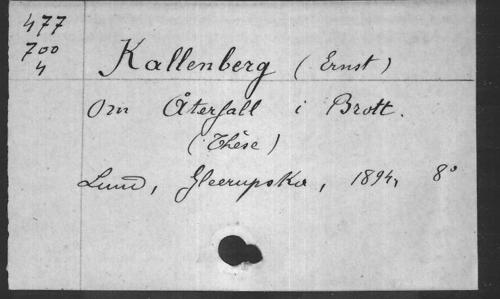 477
700
4
Kallenberg (Ernst)
Om Återfall i Brott.
(Thèse)
Lund, Gleerupska, 1894, 8°